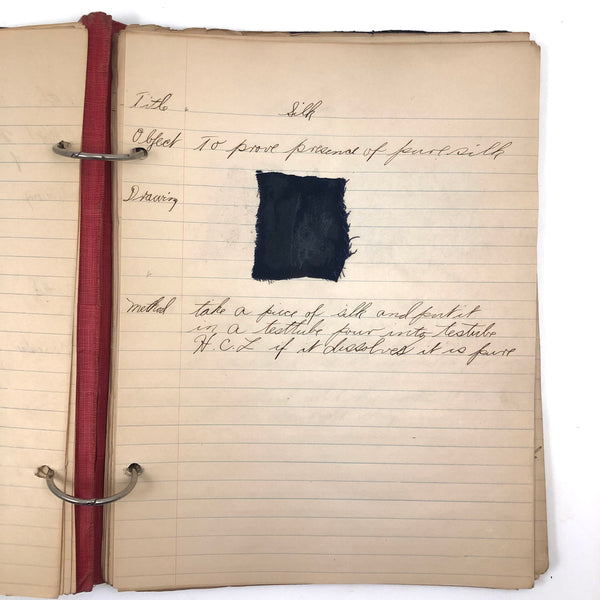 Title Silk
Object To prove presence of pure silk
Drawing
method take a piece of silk and put it
in a testtube pour into testube
H.C.L if it dissolves it is pure